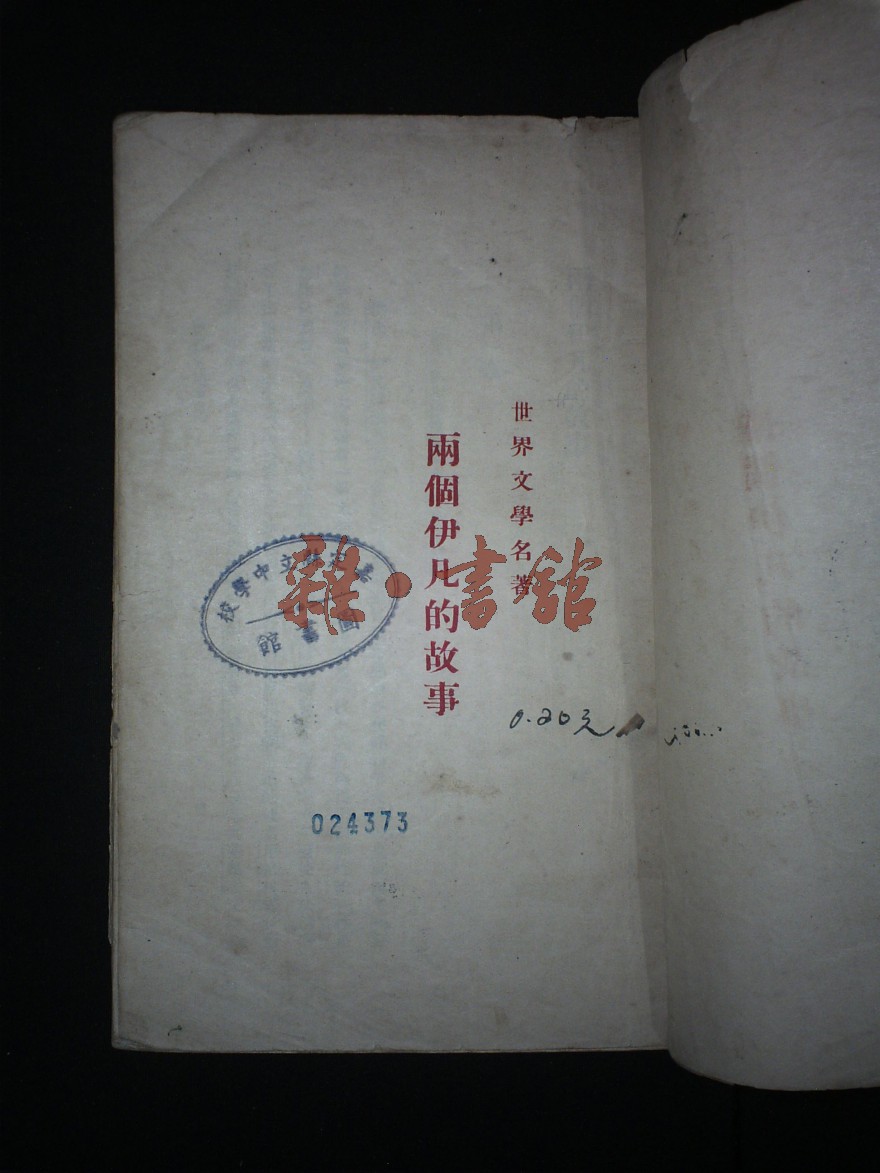 世界文學名著
兩個伊凡的故事
雜·書館
中學校
圖書館
0.20元
024373